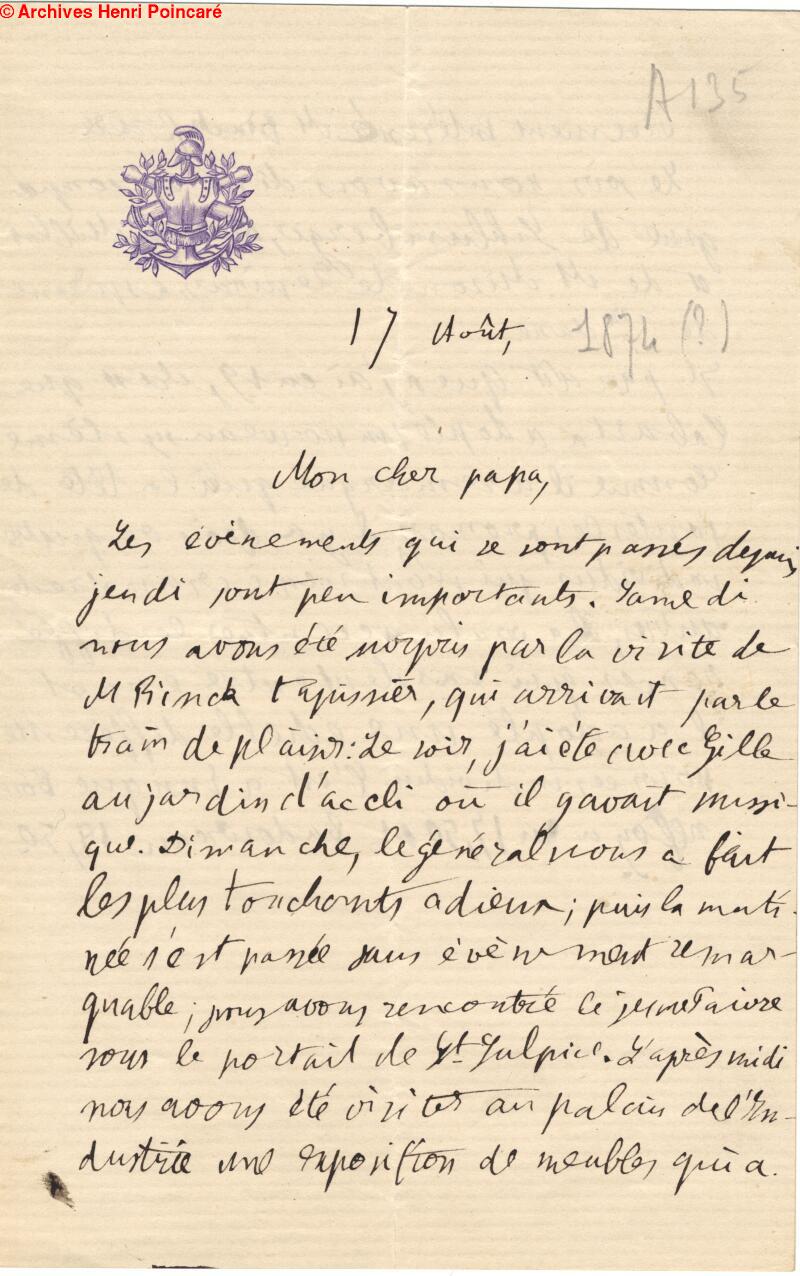 © Archives Henri Poincaré
A135
17 Août, 1874 (?)
Mon cher papa,
Les évènements qui se sont passés depuis
jeudi sont peu importants. Samedi
nous avons été surpris par la visite de
M Rienck tapissier, qui arrivait par le
train de plaisir. Le soir, j'ai été avec Gille
au jardin d'accli où il y avait musi-
que. Dimanche, le général nous a fait
les plus touchants adieux; puis la mati-
née s'est passée sans évènement remar-
quable; nous avons rencontré
sous le portail de St Sulpice. L'après midi
nous avons été visiter au palais de l'In-
dustrie une exposition de meubles qui a